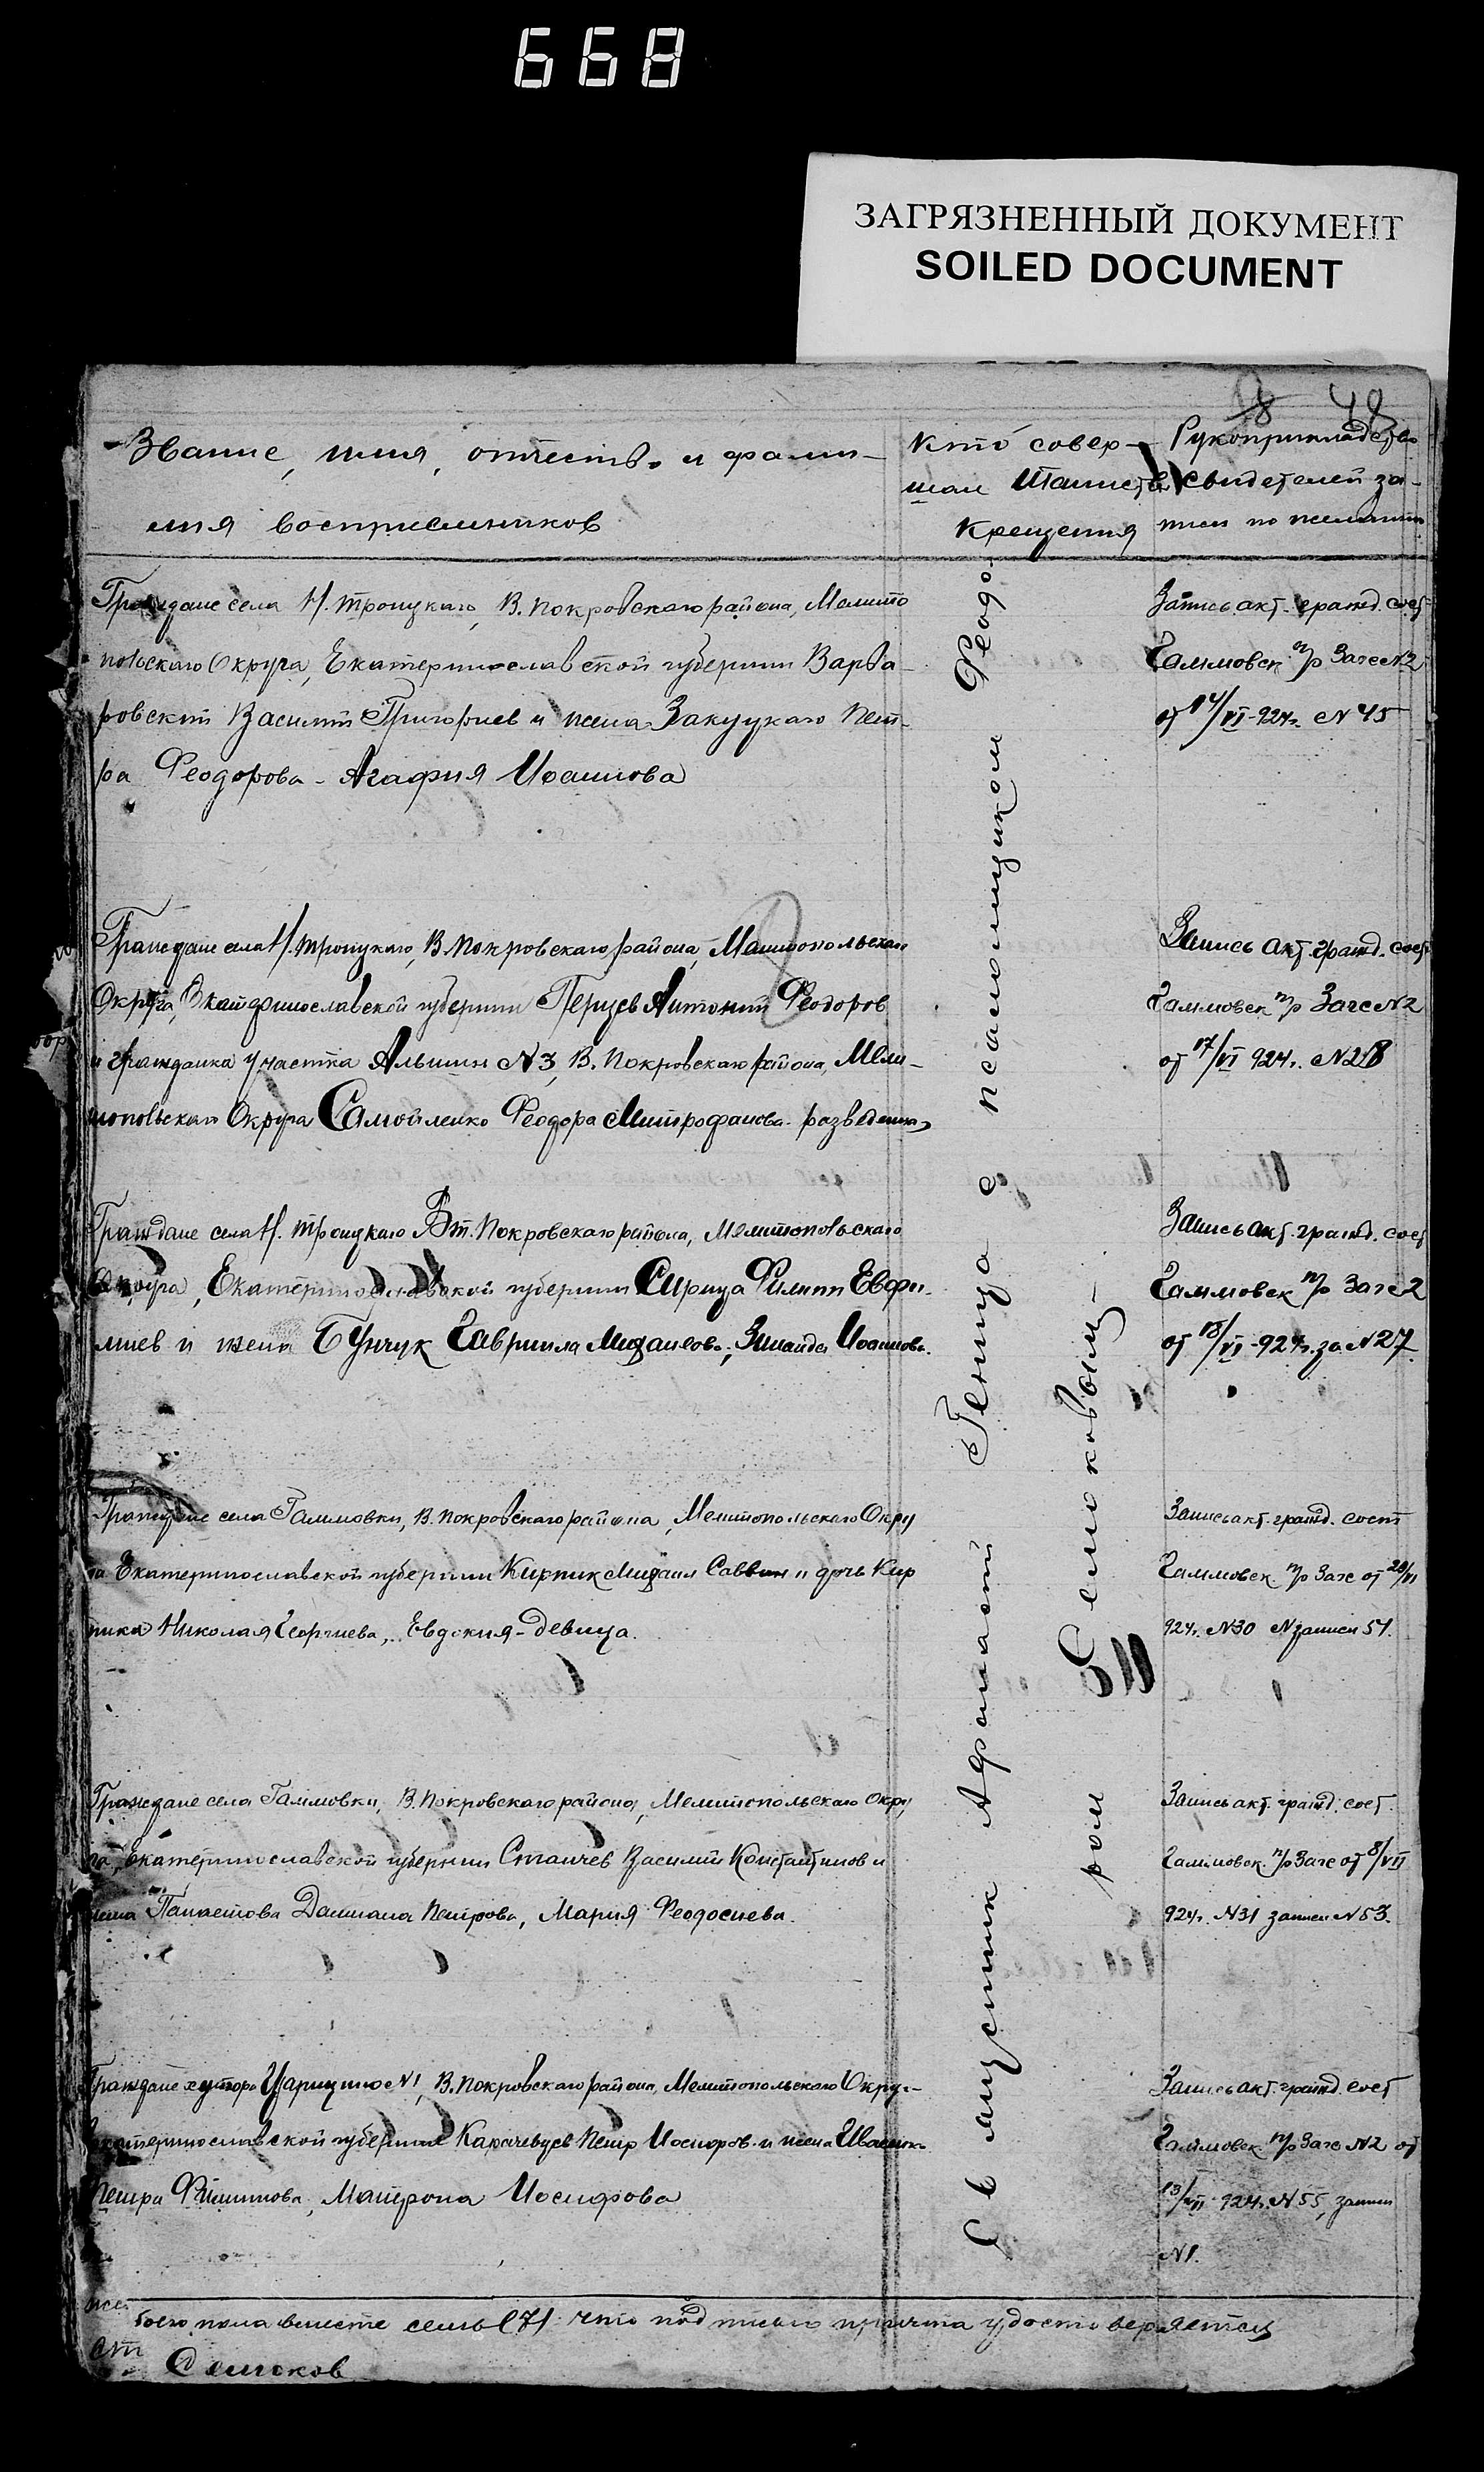 668
ЗАГРЯЗНЕННЫЙ ДОКУМЕНТ
SOILED DOCUMENT
Звание, имя, отчество и фами-
лия восприемников
Кто совер-
шал таинство
крещения
Рукоприкладство
свидетелей за-
писи по желанию
Граждане села Н. Троицкаго, В. Покровскаго района, Мелито
польскаго Округа, Екатеринославской губернии Варва-
ровский Василий Григориев и жена Закуцкаго Пет-
ра Феодорова - Агафия Иоаннова
Запись акт. гражд. сост
Галмовск. п/р Загс N2
от 14/VI-924г. N 45
Граждане села Н. Троицкаго, В. Покровскаго района, Мелитопольскаго
Округа, Екатеринославской губернии Перцев Антоний Феодоров
и гражданка участка N3, В. Покровскаго района, Мели-
топольскаго Округа Самойленко Феодора Митрофанова - разведенная
Запись акт. гражд. сост
Галмовск п/р Загс N2
от 17/VI 924г. N28
Граждане села Н. Троицкаго Вт. Покровскаго района, Мелитопольскаго
Округа, Екатеринославской губернии Сирица Филипп Евфи-
миев и жена Бунчук Гавриила Михаилова, Зинаида Иоаннова.
Запись акт. гражд. сост
Галмовск п/р Загс 2
от 18/VI-924г. за N27.
Граждане села Галмовки, В. Покровскаго района, Мелитопольскаго Окру
га Екатеринославской губернии Кирпик Михаил Саввин и дочь Кир
пика Николая Георгиева, Евдокия-девица.
Запись акт. гражд. сост
Галмовск п/р Загс от 28/VI
924г. N30 N записи 51.
Граждане села Галмовки, В. Покровскаго района, Мелитопольскаго Окру
га, Екатеринославской губернии Станчев Василий Константинов и
жена Панаетова Дамиана Петрова, Мария Феодосиева.
Запись акт. гражд. сост.
Галмовск. п/р Загс от 8/VII
924г. N31 записи N53.
Граждане хутора Царицыно N1, В. Покровскаго района, Мелитопольскаго Окру-
Екатеринославской губернии Карачевцев Петр Иосифов и жена
Петра Филиппова, Матрона Иосифова
Запись акт. гражд. сост
Галмовск п/р Загс N2 от
13/VII 924г. N55, записи
N1.
Священник Афанасий Геница с псаломщиком Феодо-
ром Семковым -
боего пола вместе семь (7) что подписью причта удостоверяется
Семков